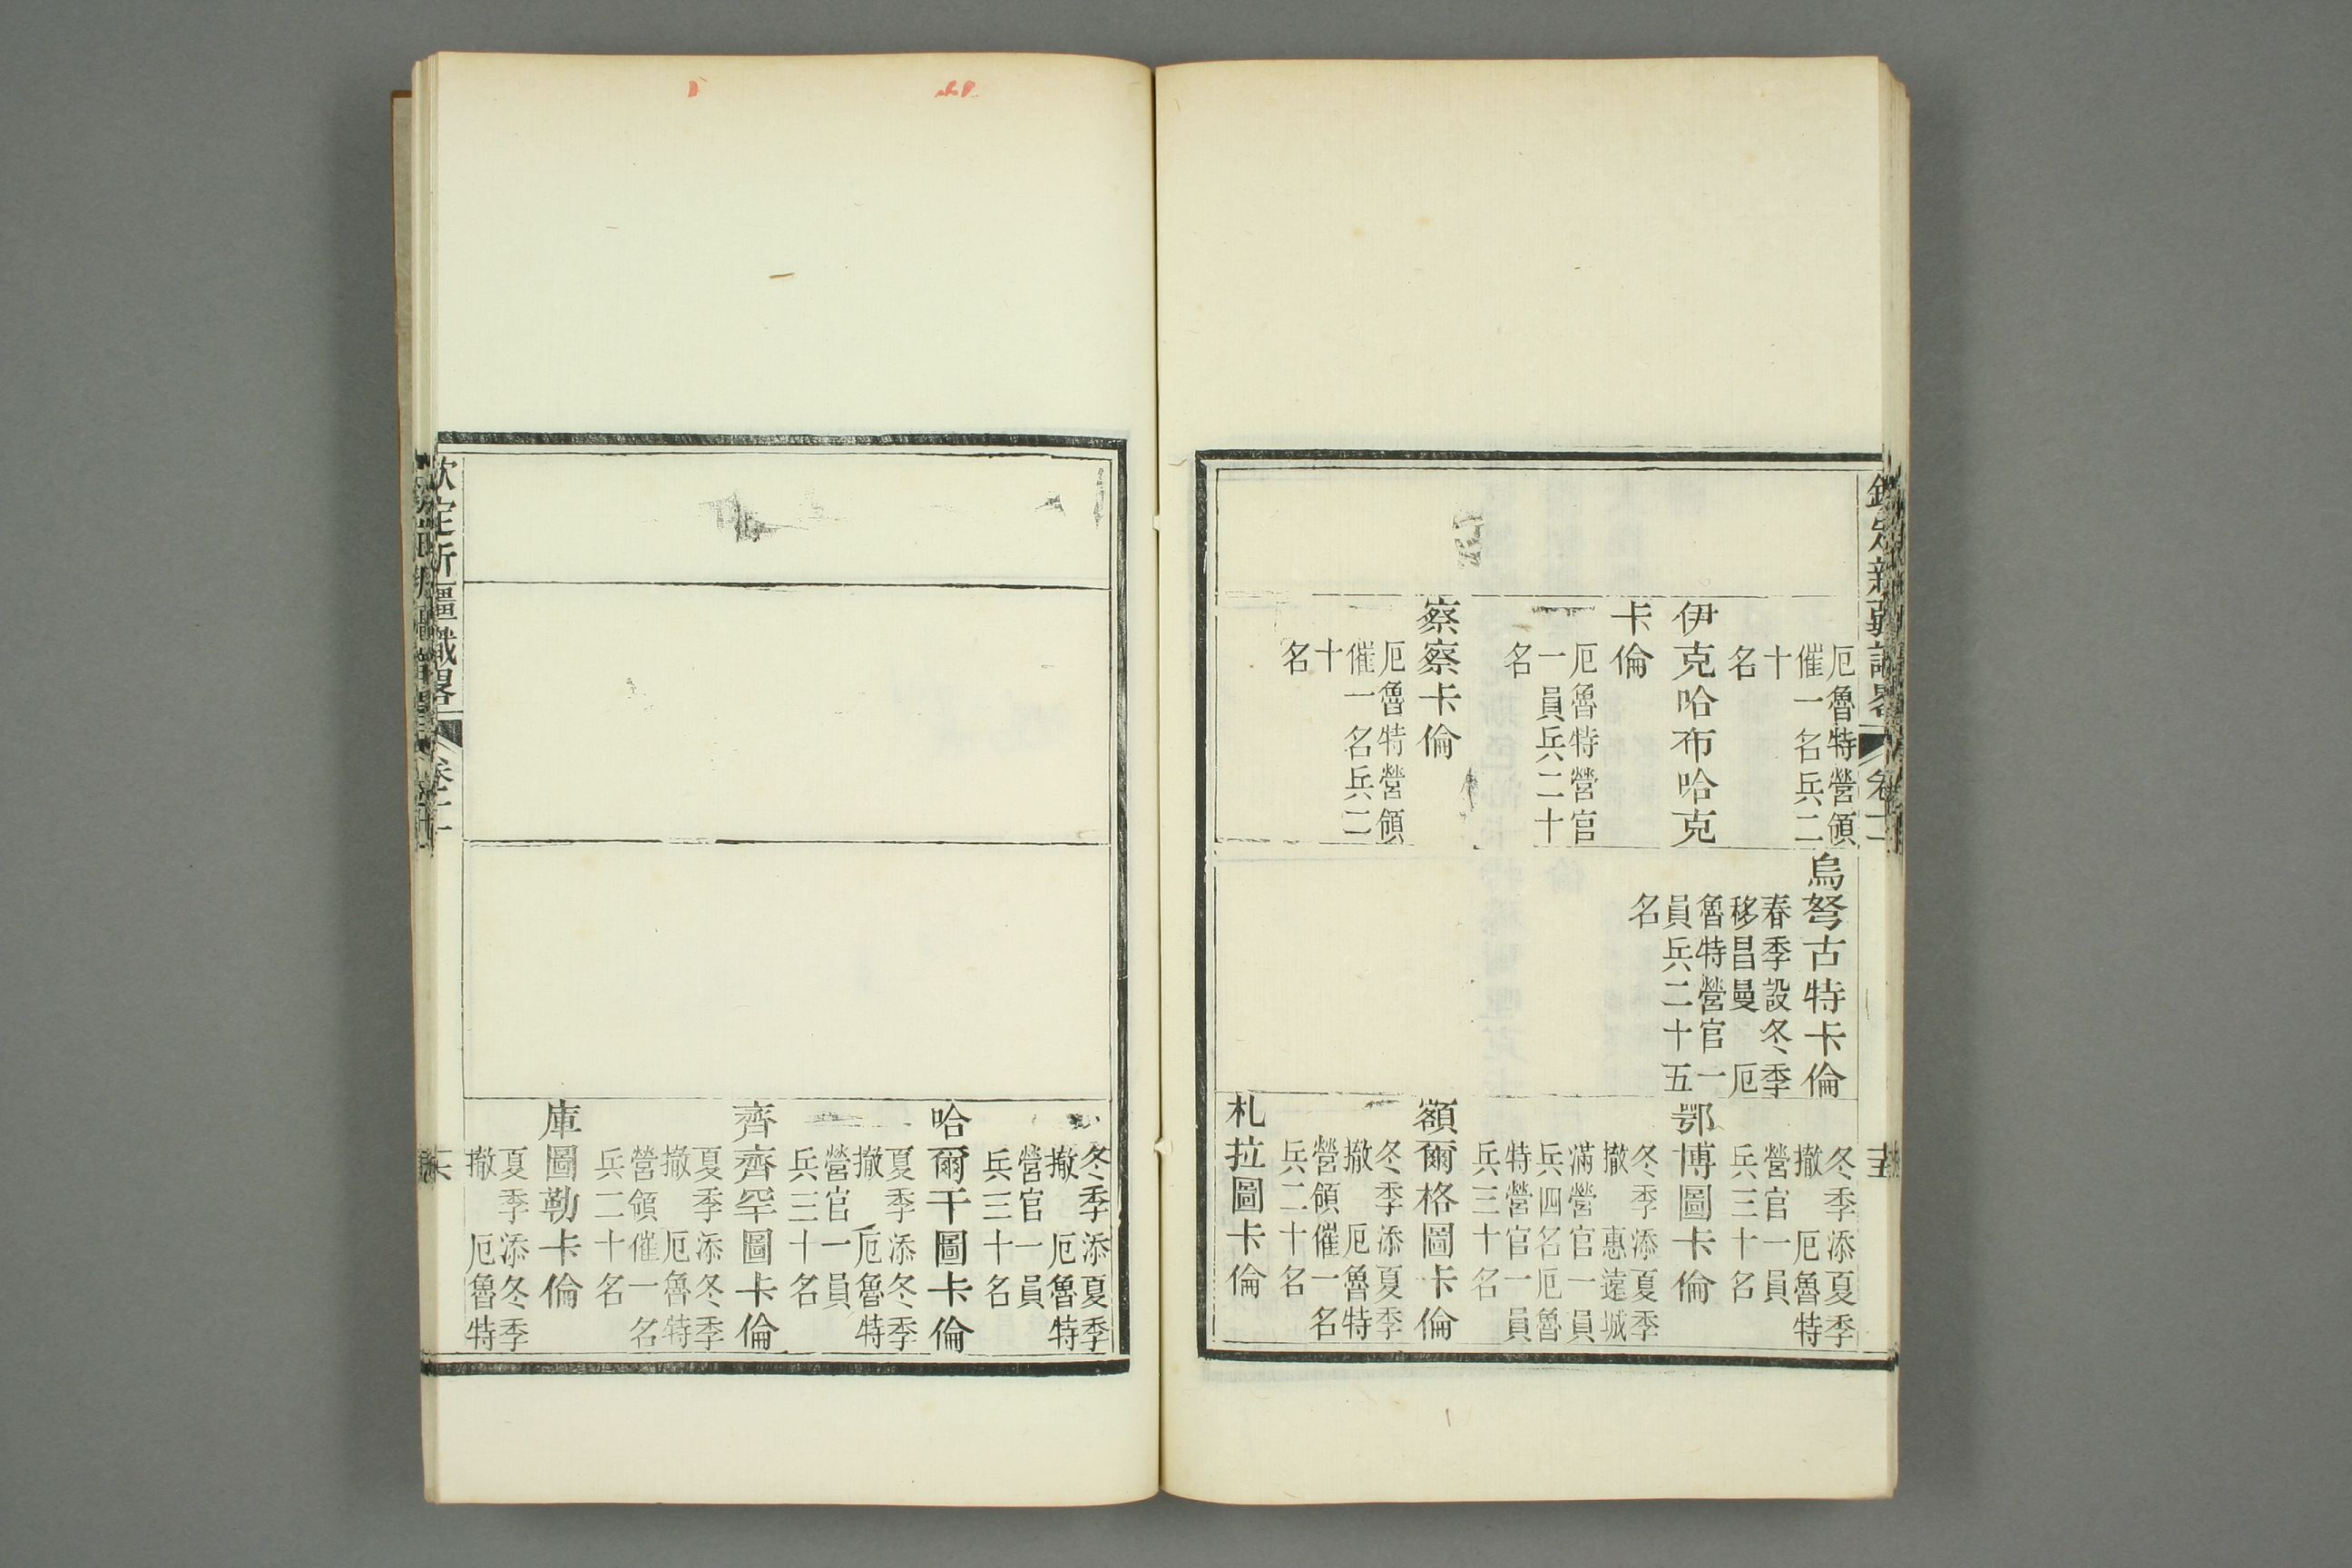 厄魯特營領
催一名兵二
十
名
伊克哈布哈克
卡倫
厄魯特營官
一員兵二十
名
察察卡倫
厄魯特營領
催一名兵二
十
名
烏弩古特卡倫
春季設冬季
移昌曼　厄
魯特營官一
員兵二十五
名
冬季添夏季
撤　厄魯特
營官一員
兵三十名
鄂博圖卡倫
冬季添夏季
撤　惠遠城
滿營官一員
兵四名厄魯
特營官一員
兵三十名
額爾格圖卡倫
冬季添夏季
撤　厄魯特
營領催一名
兵二十名
札拉圖卡倫
冬季添夏季
撤　厄魯特
營官一員
兵三十名
哈爾干圖卡倫
夏季添冬季
撤　厄魯特
營官一員
兵三十名
齊齊罕圖卡倫
夏季添冬季
撤　厄魯特
營領催一名
兵二十名
庫圖勒卡倫
夏季添冬季
撤　厄魯特
欽定新疆識畧